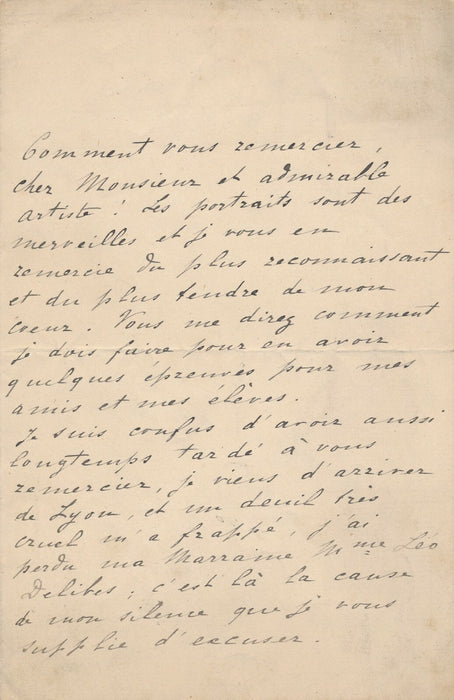 Comment vous remercier,
cher Monsieur et admirable
artiste ! Les portraits sont des
merveilles et je vous en
remercie du plus reconnaissant
et du plus tendre de mon
coeur. Vous me direz comment
je dois faire pour en avoir
quelques épreuves pour mes
amis et mes élèves.
Je suis confus d'avoir aussi
longtemps tardé à vous
remercier, je viens d'arriver
de Lyon, et un deuil très
cruel m'a frappé, j'ai
perdu ma Marraine Mme Léo
Delibes ; c'est là la cause
de mon silence que je vous
supplie d'excuser.